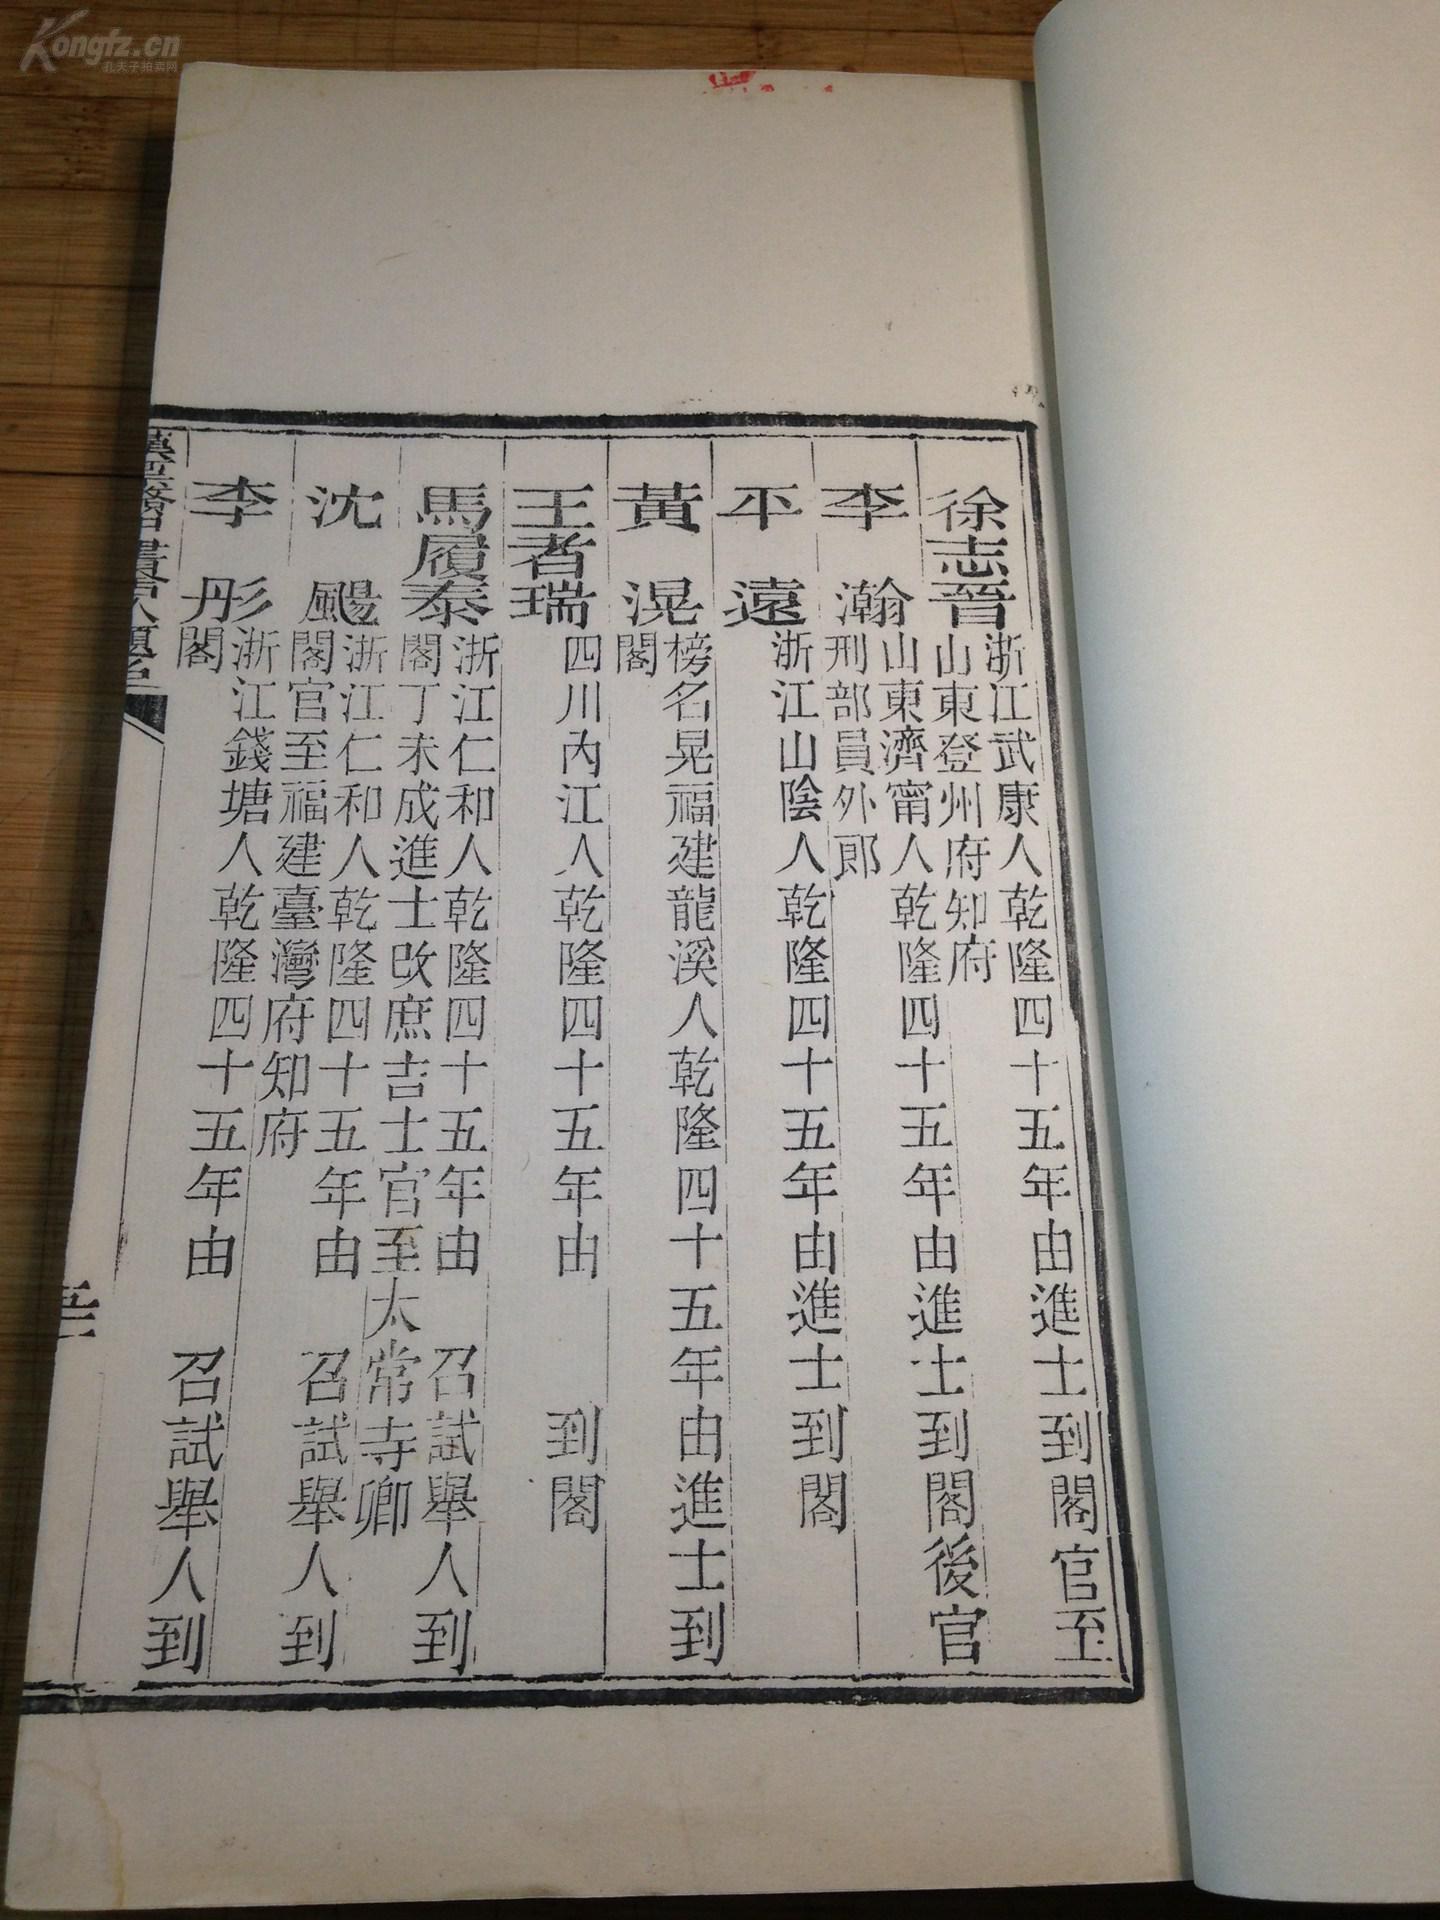 Kongfz.cn
孔夫子拍卖网
徐志晉
浙江武康人乾隆四十五年由進士到閣官至
山東登州府知府
李瀚
山東濟甯人乾隆四十五年由進士到閣後官
刑部員外郎
平遠
浙江山陰人乾隆四十五年由進士到閣
黃滉
榜名晃福建龍溪人乾隆四十五年由進士到
閣
王者瑞
四川內江人乾隆四十五年由 到閣
馬履泰
浙江仁和人乾隆四十五年由 召試舉人到
閣丁未成進士改庶吉士官至太常寺卿
沈颺
浙江仁和人乾隆四十五年由 召試舉人到
閣官至福建臺灣府知府
李彤
浙江錢塘人乾隆四十五年由 召試舉人到
閣